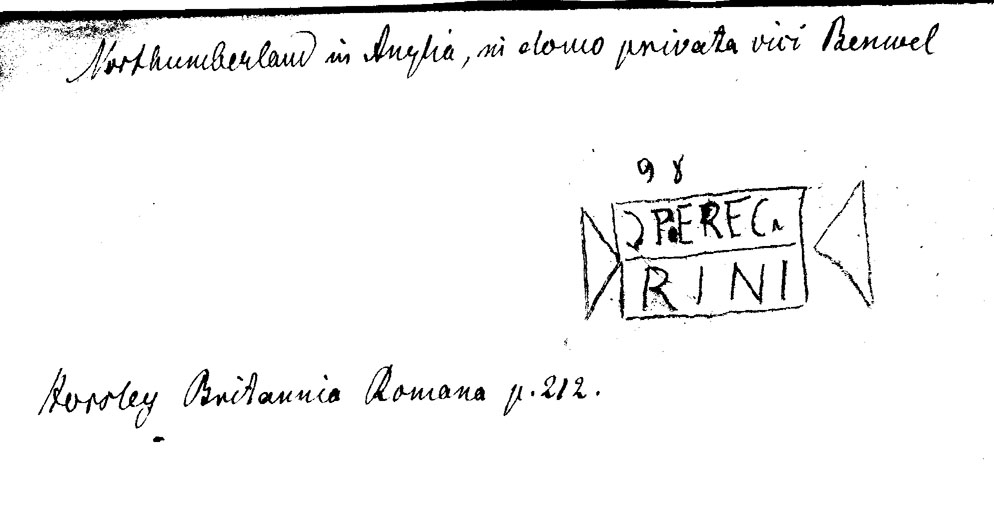 Northumberland in Anglia, in domo privata vici Benwel
98
Ɔ PEREG
RINI
Horsley Britannia Romana p. 212.